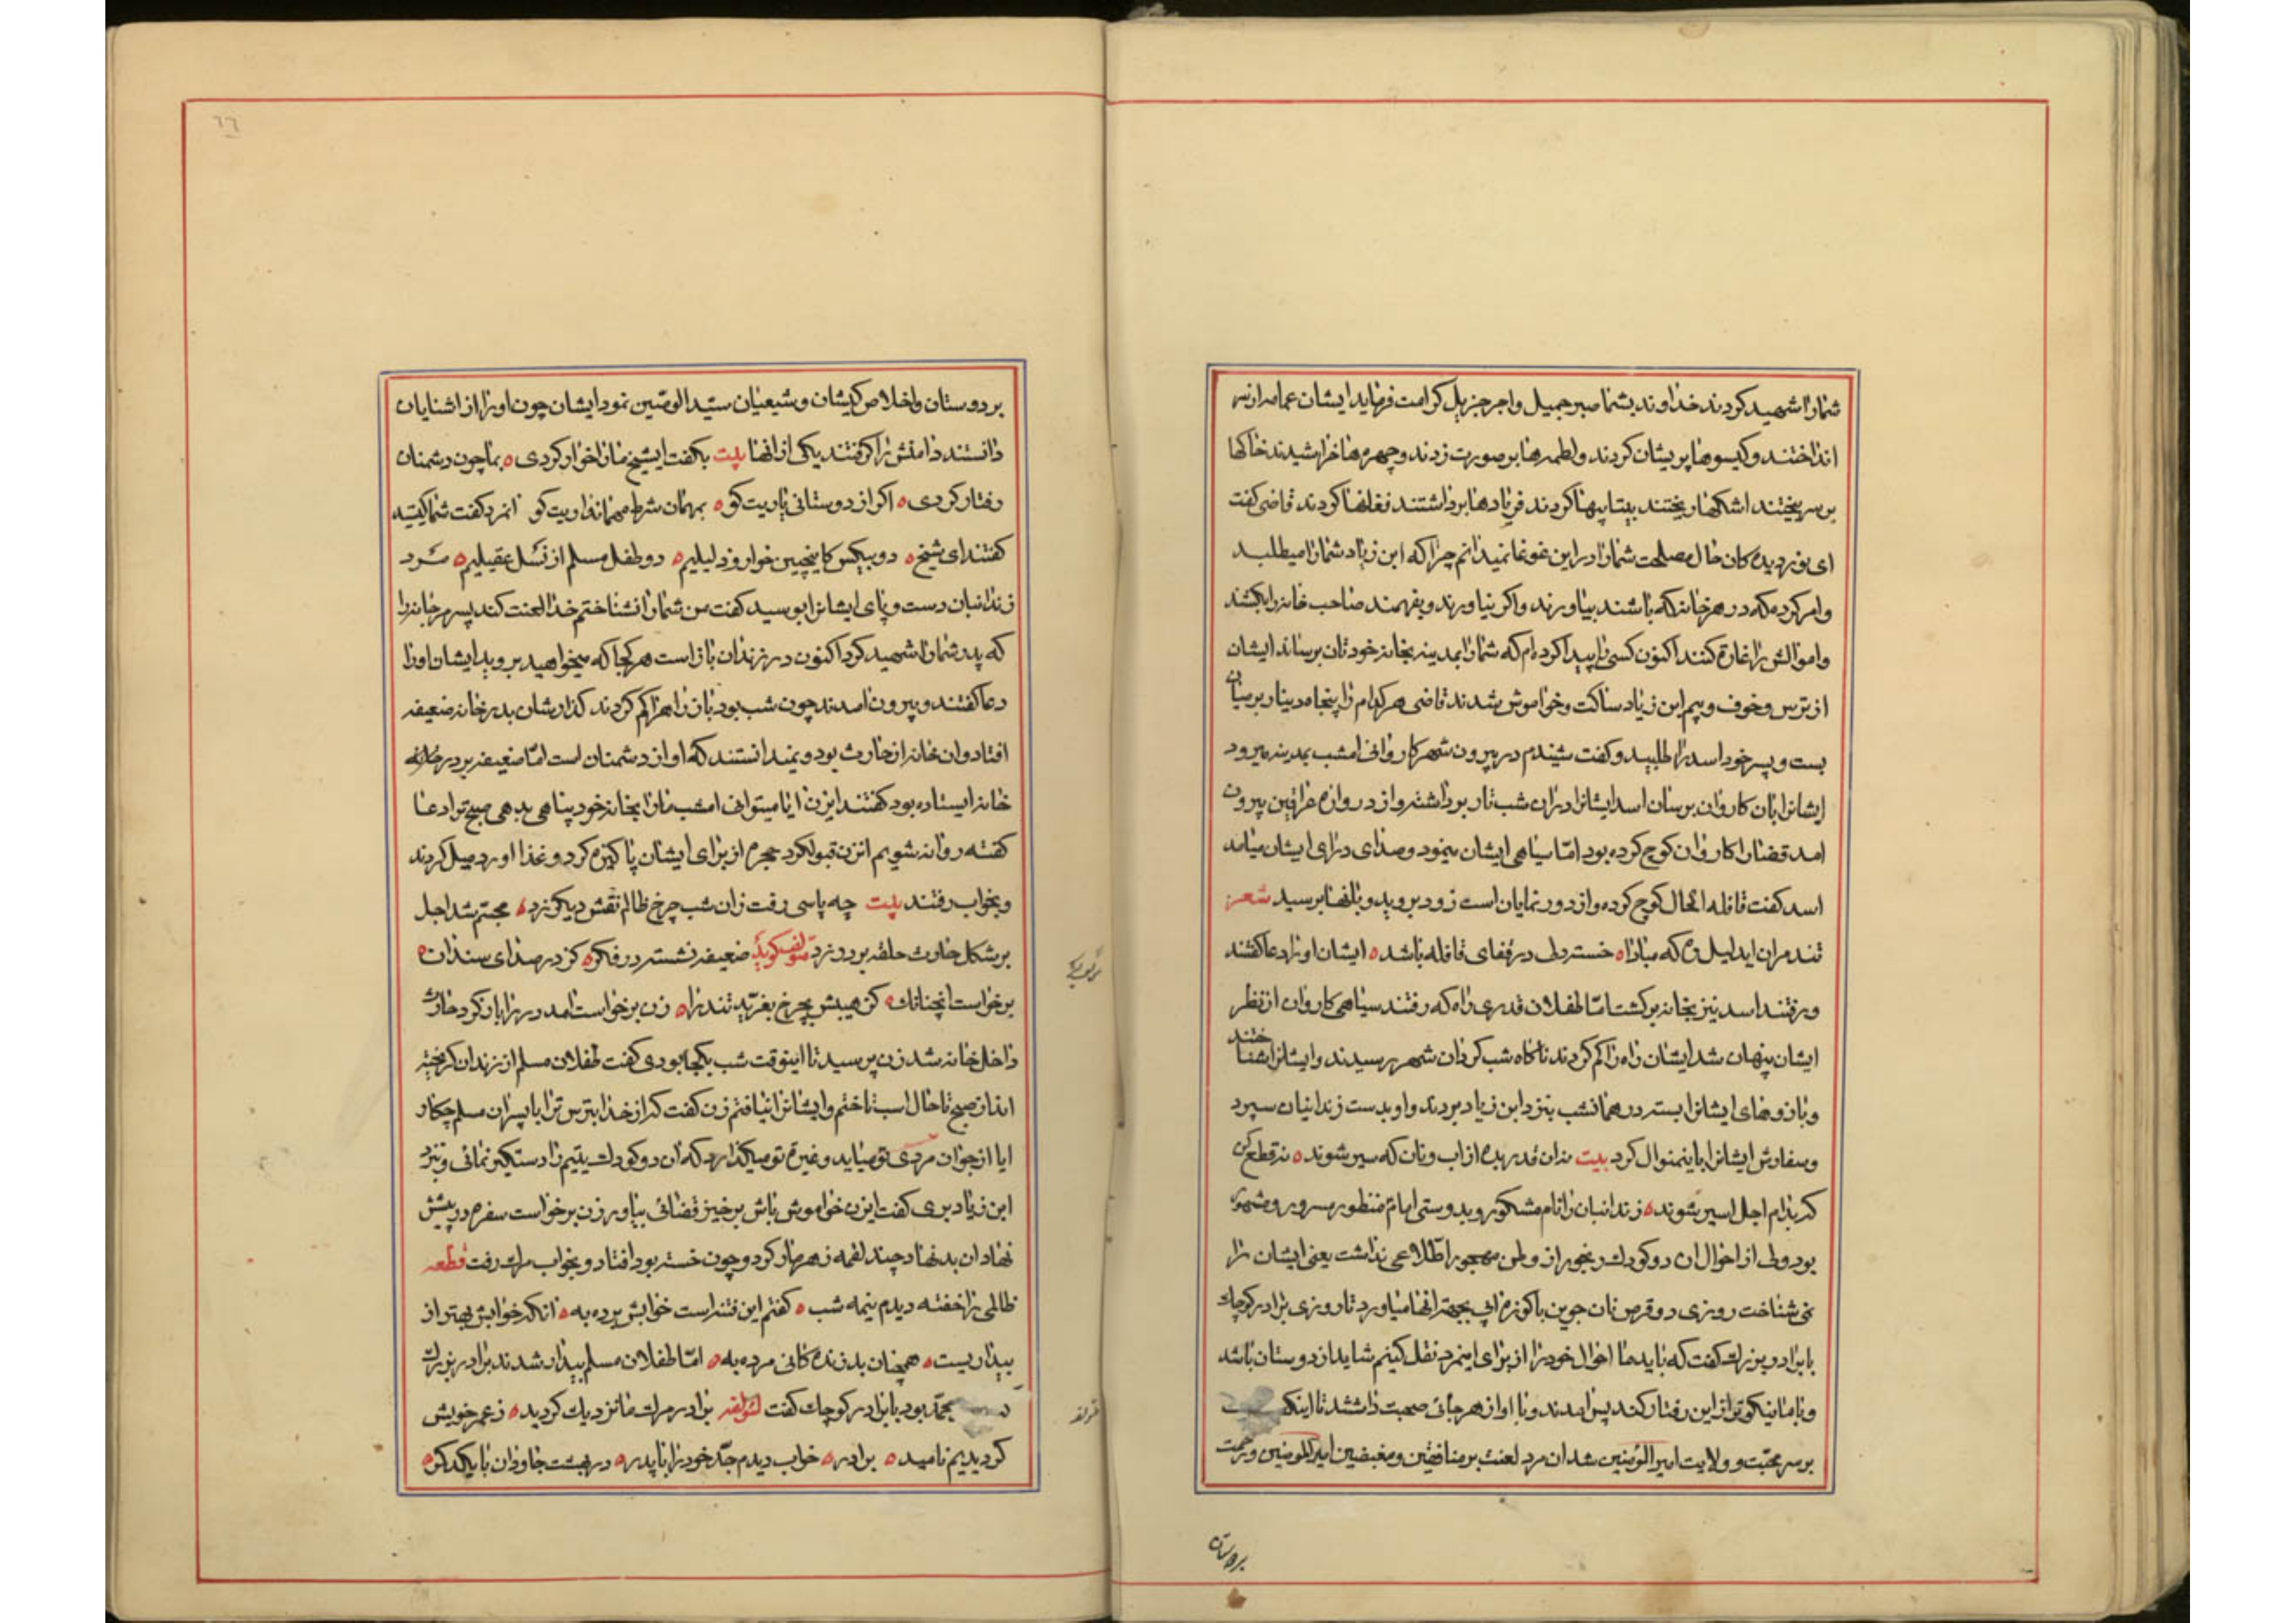 شما را شهید کردند خداوند بشما صبر جمیل و اجر جزیل کرامت فرماید ایشان عمامه از سر
انداختند و کیسوها پریشان کردند و لطمه‌ها بر صورت زدند و چهره‌ها خراشیدند خاکها
بر سر بیختند اشکها ریختند بیتابیها کردند فریادها برداشتند فغانها کردند قاضی کفت
ای نور دیده‌کان حال مصلحت شما را در این غوغا نمیدانم چرا که ابن زیاد شما را میطلبد
و امر کرده که در هر خانه که باشند بیاورند و اکر نیاورند و بفهمند صاحب خانه را بکشند
و اموالش را غارة کنند اکنون کسی را پیدا کرده‌ام که شما را بمدینه بخانه خودتان برساند ایشان
از ترس و خوف و بیم ابن زیاد ساکت و خواموش شدند قاضی هر کدام را پنجاه دینار بر میان
بست و پسر خود اسد را طلبید و کفت شنیدم در بیرون شهر کاروانی امشب بمدینه میرود
ایشانرا بان کاروان برسان اسد ایشانرا در ان شب تار برداشته و از دروازه عراقین بیرون
امد قضا را کاروان کوچ کرده بود امّا سیاهی ایشان مینمود و صدای درای ایشان میامد
اسد کفت قافله الحال کوچ کرده و از دور نمایان است زود بروید و بانها برسید شعر
تند مران ای دلیل ره که مبادا خسته دلی در قفای قافله باشد ایشان او را دعا کفتند
و رفتند اسد نیز بخانه برکشت امّا طفلان قدری راه که رفتند سیاهی کاروان از نظر
ایشان پنهان شد ایشان راه را کم کردند ناکاه شب کردان شهر رسیدند و ایشانرا شناختند
و بازوهای ایشانرا بسته در همانشب بنزد ابن زیاد بردند و او بدست زندانیان سپرد
و سفارش ایشانرا باینمنوال کرد بیت نه ان قدر بده از اب و نان که سیر شوند نه قطع کن
که بدام اجل اسیر شوند زندانبان را نام مشکور و بدوستی امام منظور مسرور و مشهور
بود ولی از احوال ان دو کودک رنجور از وطن مهجور اطّلاعی نداشت یعنی ایشان را
نمی‌شناخت روزی دو قرص نان جوین با کوزه ابی بجهة انها میاورد تا روزی برادر کوچک
با برادر بزرک کفت که باید ما احوال خود را از برای اینمرد نقل کنیم شاید از دوستان باشد
و با ما نیکوتر از این رفتار کند پس امدند و با او از هر جائی صحبت داشتند تا اینکه
بر سر محبّت و ولایت امیر المؤمنین شد ان مرد لعنت بر منافقین و مبغضین امیر المؤمنین و رحمت
بر دوستان
٦٦
بر دوستان و اخلاص کیشان و شیعیان سیّد الوصیّین نمود ایشان چون او را از اشنایان
دانستند دامنش را کرفتند یکی از انها بیت بکفت ایشیخ ما را خوار کردی بما چون دشمنان
رفتار کردی اکر از دوستانی یاریت کو بمهمان شرط مهمانداریت کو انمرد کفت شما کیستید
کفتند ای شیخ دو بیکس کاینچنین خوار و ذلیلیم دو طفل مسلم از نسل عقیلیم مرد
زندانبان دست و پای ایشانرا بوسید کفت من شما را نشناختم خدا لعنت کند پسر مرجانه را
که پدر شما را شهید کرد اکنون در زندان باز است هر کجا که میخواهید بروید ایشان او را
دعا کفتند و بیرون امدند چون شب بود باز راه را کم کردند کذارشان بدر خانه ضعیفه
افتاد و ان خانه از حارث بود و نمیدانستند که او از دشمنان است امّا ضعیفه بر در
خانه ایستاده بود کفتند ایزن ایا میتوانی امشب ما را بخانه خود پناهی بدهی صبح ترا دعا
کفته روانه شویم انزن قبول کرد حجره از برای ایشان پاکیزه کرد و غذا اورد میل کردند
و بخواب رفتند بیت چه پاسی رفت زان شب چرخ ظالم نقش دیکر زد مجسّم شد اجل
بر شکل حارث حلقه بر در زد مؤلّف کوید ضعیفه نشسته در فکر کز در صدای سندان
برخواست انچنانک کز هیبتش بچرخ بغرّید تندرا زن برخواست امد در را باز کرد حارث
داخل خانه شد زن پرسید تا اینوقت شب بکجا بودی کفت طفلان مسلم از زندان کریخته
اند از صبح تا حال اسب تاختم و ایشانرا نیافتم زن کفت که از خدا بترس ترا با پسران مسلم چکار
ایا از جوان مردی تو میاید و غیرة تو میکذارد که ان دو کودک یتیم را دستکیر نمائی و نزد
ابن زیاد بری کفت ایزن خواموش باش برخیز قضائی بیاور زن برخواست سفره در پیش
نهاد ان بد نهاد چند لقمه زهر مار کرد و چون خسته بود افتاد و بخواب مرک رفت قطعه
ظالمی را خفته دیدم نیمه شب کفتم این فتنه است خوابش برده به انکه خوابش بهتر از
بیداریست همچنان بد زنده‌کانی مرده به امّا طفلان مسلم بیدار شدند برادر بزرک
محمّد بود با برادر کوچک کفت لمؤلفه برادر مرک ما نزدیک کردید ز عمر خویش
کردیدیم نامید برادر خواب دیدم جدّ خود را با پدر در بهشت جاودان با یکدکر